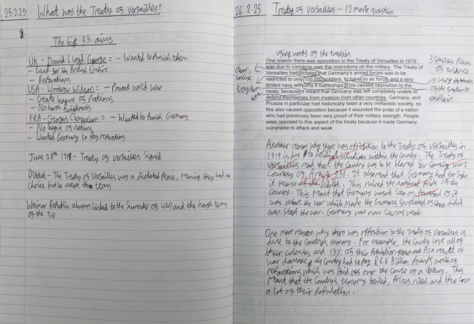 25.2.25 What was the Treaty of Versailles?
The Big 3's aims
UK - David Lloyd George = - Wanted to punish them
- Land for the British Empire
- Reparations
USA - Woodrow Wilson = - Prevent world war
- Create league of nations
- No harsh punishments
FRA - Georges Clemenceau = - Wanted to punish Germany
- No league of nations
- Wanted Germany to pay reparations
June 28th 1919 - Treaty of Versailles Signed
Diktat - The Treaty of Versailles was a dictated peace, meaning they had no
choice but to accept the terms
Weimar Republic always linked to the surrender of WWI and the harsh terms
of the
26.2.25 Treaty of Versailles - 12 mark question
using words of the question
One reason there was opposition to the Treaty of Versailles in 1919
was due to concerns over the restrictions on the military. The Treaty of
Versailles had stated that Germany's armed forces was to be
restricted to only 100,000 soldiers, to have no air forces and a very
limited navy with only 6 battleships. This caused opposition to the
treaty, because it meant that Germany was left completely unable to
defend themselves from invasion from other countries. Germany, and
Prussia in particular had historically been a very militaristic society, so
this also caused opposition because it wounded the pride of a nation
who had previously been very proud of their military strength. People
were opposed to this aspect of the treaty because it made Germany
vulnerable to attack and weak.
of evidence
Another reason why there was opposition to the Treaty of Versailles in
1919 is due to within the country. The Treaty of
Versailles said that the country was to be blamed for causing
Article 231. It that Germany had to sign
it. This ruined the pride of the
country. This meant that Germans
was the war which made the Germans as they didn't
even start the war. Germany was now seen as weak.
One more reason why there was opposition to the Treaty of Versailles is
due to the country's economy. For example, the country lost all of
their colonies, and 13% of their population. As a result of
war damage the country had to pay £6.6 billion pounds worth of
reparations which was paid off over the course of a century. This
meant that the country's economy failed, prices rised and they lose
a lot of their population.